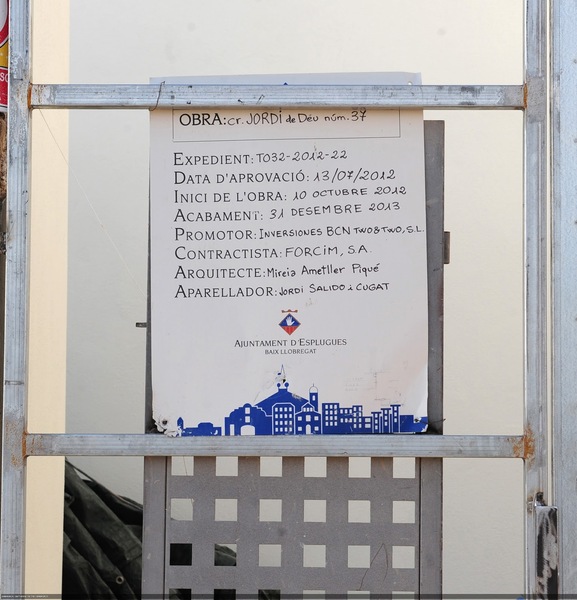 OBRA: cr. JORDI de Déu núm. 37
EXPEDIENT: T032-2012-22
DATA D'APROVACIÓ: 13/07/2012
INICI DE L'OBRA: 10 OCTUBRE 2012
ACABAMENT: 31 DESEMBRE 2013
PROMOTOR: INVERSIONES BCN TWO&TWO, S.L.
CONTRACTISTA: FORCIM, S.A.
ARQUITECTE: Mireia Ametller Piqué
APARELLADOR: JORDI SALIDO i CUGAT
AJUNTAMENT D'ESPLUGUES
BAIX LLOBREGAT